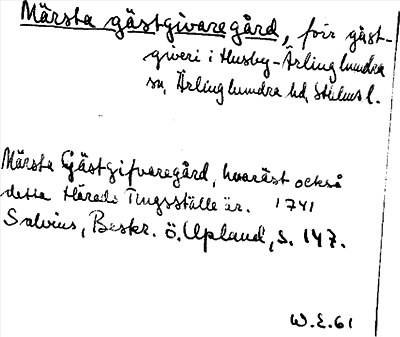 Märsta gästgivaregård, förr gäst-
giveri i Husby-Ärlinghundra
sn, Ärlinghundra hd, Sthlms l.
Märsta Gästgifvaregård, hvaräst också
detta Härads Tingsställe är. 1741
Salvius, Beskr. ö. Upland, s. 147.
W.E.61